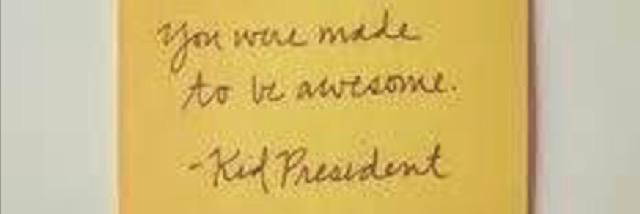 You were made
to be awesome.
-Kid President